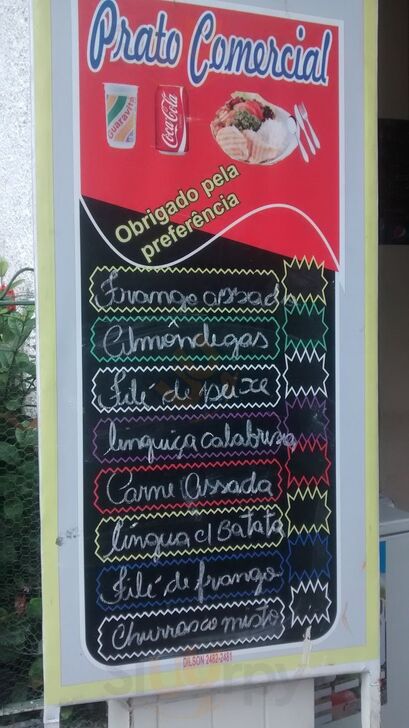 Prato Comercial
Guaravita
Coca-Cola
Obrigado pela
preferência
Frango assado
Almôndegas
Filé de peixe
linguiça calabresa
Carne Assada
língua c/ Batata
Filé de frango
Churrasco misto
DILSON 2482-2481